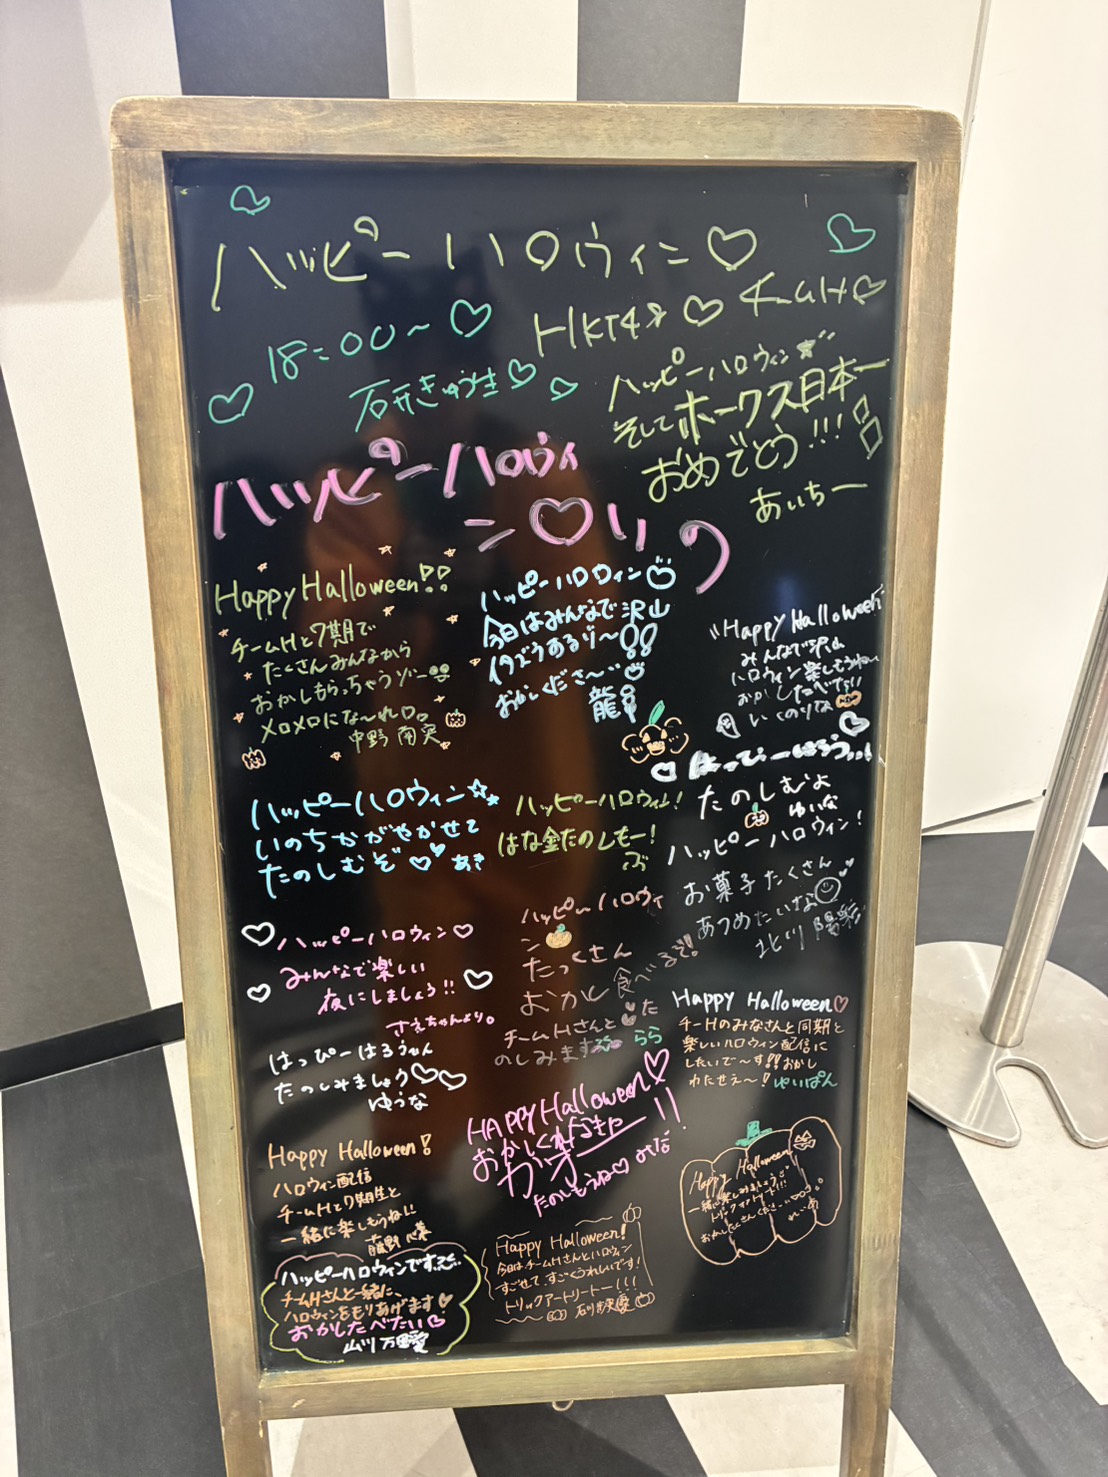 ハッピーハロウィン♡
18:00〜♡
HKT48♡
チームH♡
石ñ
ハッピーハロウィン☆
そしてホークス日本一
おめでとう!!!
あいちー
ハッピーハロウィ
ン♡りの
Happy Halloween!!
チームHと7期で
たくさんみんなから
おかしもらっちゃうゾー
メロメロにな〜れ
ハッピーハロウィン
今日はみんなで沢山
イタズラするゾ〜!!
おかしくださ〜い
"Happy Halloween"
みんなで沢山
ハロウィン楽しもうねー
おかしたべたい
いくのりな
はっぴーはろうぃん
たのしむよ
ゆいな
ハッピーハロウィン☆
いのちかがやかせて
たのしむぞ♡ あき
ハッピーハロウィン!
はな金たのしもー!
ぶ
ハッピーハロウィン!
お菓子たくさん
あつめたいな
北川 陽彩
ハッピーハロウィン♡
みんなで楽しい
夜にしましょう!!
さえちゃんより。
ハッピーハロウィ
ン
たっくさん
おかし食べるぞ!!
チームHさんと♥た
のしみます らら
はっぴーはろうぃん
たのしみましょう♡♡
ゆうな
Happy Halloween♡
チーHのみなさんと同期と
楽しいハロウィン配信に
したいで〜す!!おかし
わたせえ〜! ゆいぱん
HAPPY Halloween♡
おかしくれなきゃ
たのしもうね♡
Happy Halloween!
ハロウィン配信
チームHと7期生と
一緒に楽しもうね!!
Happy Halloween
一緒に楽しみましょう
トリックオアトリート!!
おかしたくさんください
れいあ
ハッピーハロウィンです
チームHさんと一緒に、
ハロウィンをもりあげます!
おかしたべたい♡
Happy Halloween!
今日はチームHさんとハロウィン
すごせて、すごくうれしいです!
トリックアートリートー!!!